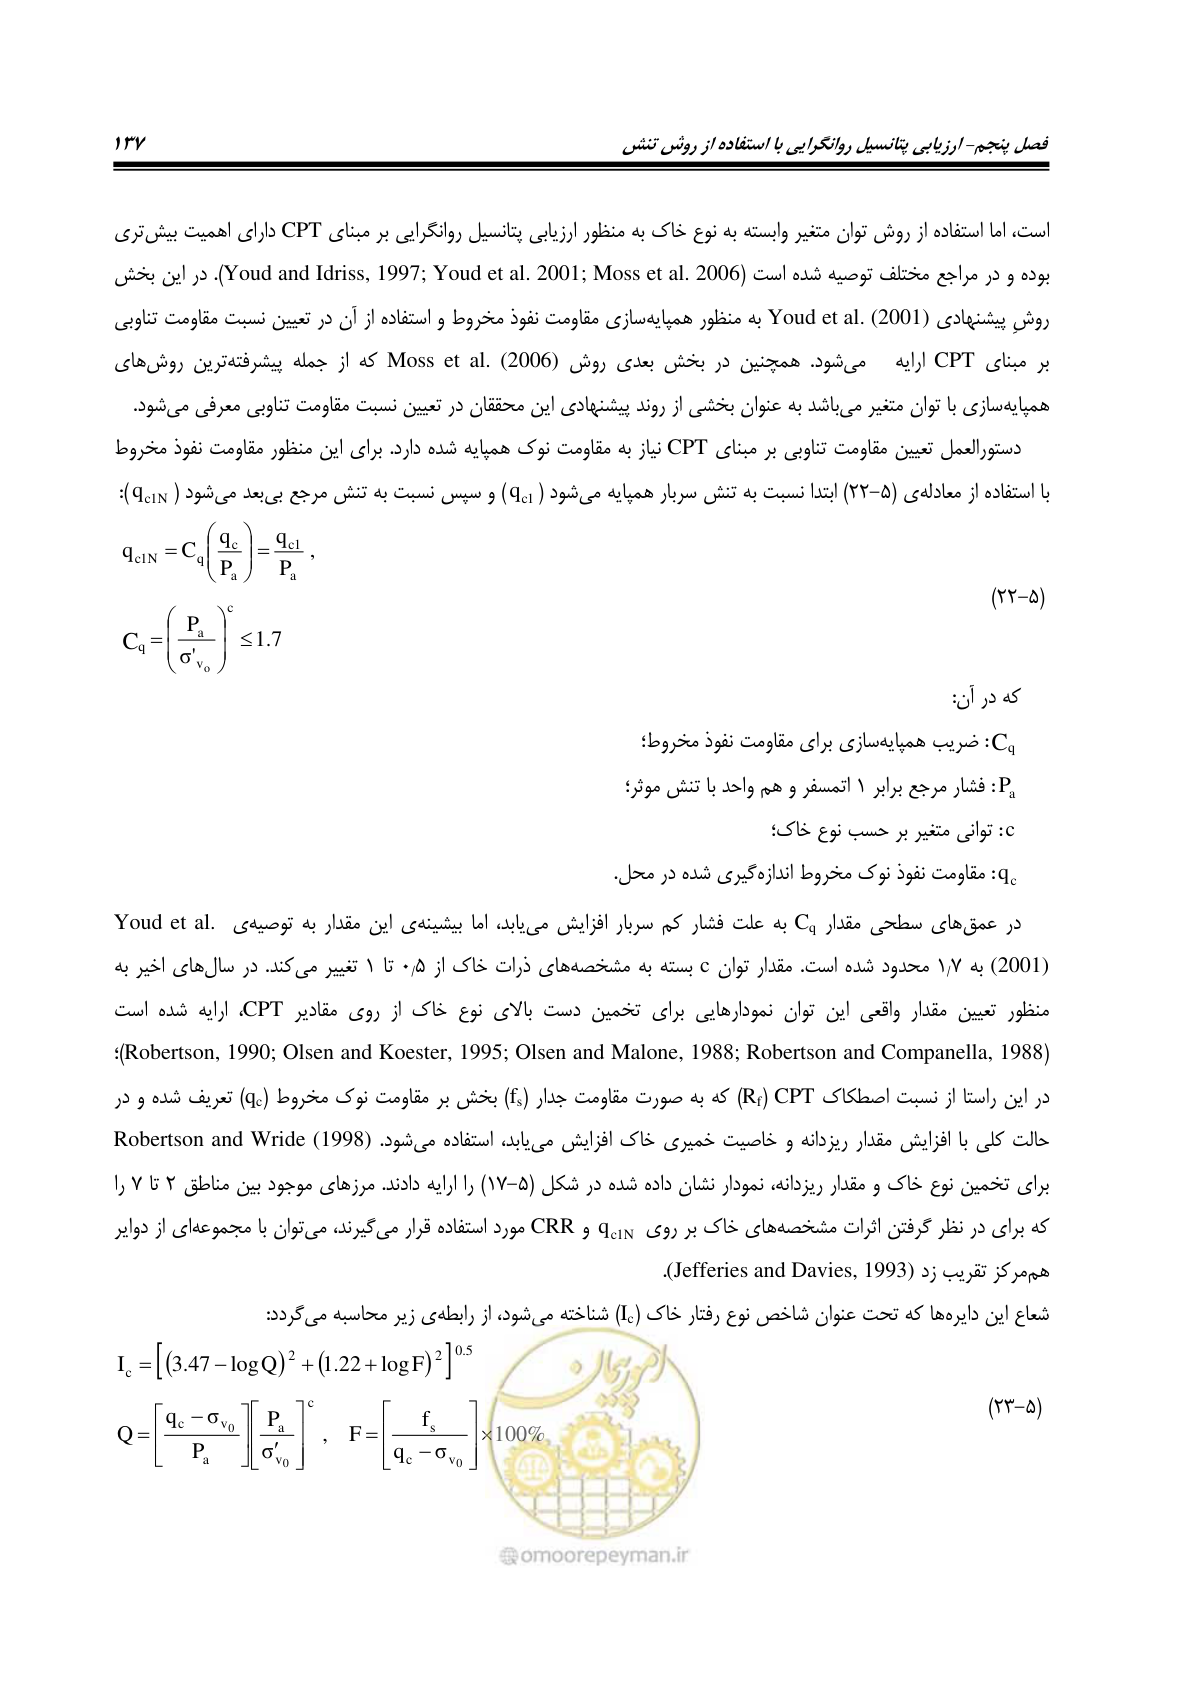 فصل پنجم- ارزیابی پتانسیل روانگرایی با استفاده از روش تنش ۱۳۷
است، اما استفاده از روش توان متغیر وابسته به نوع خاک به منظور ارزیابی پتانسیل روانگرایی بر مبنای CPT دارای اهمیت بیش‌تری
بوده و در مراجع مختلف توصیه شده است (Youd and Idriss, 1997; Youd et al. 2001; Moss et al. 2006). در این بخش
روشِ پیشنهادی Youd et al. (2001) به منظور همپایه‌سازی مقاومت نفوذ مخروط و استفاده از آن در تعیین نسبت مقاومت تناوبی
بر مبنای CPT ارایه می‌شود. همچنین در بخش بعدی روش Moss et al. (2006) که از جمله پیشرفته‌ترین روش‌های
همپایه‌سازی با توان متغیر می‌باشد به عنوان بخشی از روند پیشنهادی این محققان در تعیین نسبت مقاومت تناوبی معرفی می‌شود.
دستورالعمل تعیین مقاومت تناوبی بر مبنای CPT نیاز به مقاومت نوک همپایه شده دارد. برای این منظور مقاومت نفوذ مخروط
با استفاده از معادله‌ی (۵-۲۲) ابتدا نسبت به تنش سربار همپایه می‌شود (q_c1) و سپس نسبت به تنش مرجع بی‌بعد می‌شود (q_c1N):
q_c1N = C_q (q_c / P_a) = q_c1 / P_a ,
(۵-۲۲)
C_q = (P_a / σ'_vo)^c ≤ 1.7
که در آن:
C_q: ضریب همپایه‌سازی برای مقاومت نفوذ مخروط؛
P_a: فشار مرجع برابر ۱ اتمسفر و هم واحد با تنش موثر؛
c: توانی متغیر بر حسب نوع خاک؛
q_c: مقاومت نفوذ نوک مخروط اندازه‌گیری شده در محل.
در عمق‌های سطحی مقدار C_q به علت فشار کم سربار افزایش می‌یابد، اما بیشینه‌ی این مقدار به توصیه‌ی Youd et al.
(2001) به ۱/۷ محدود شده است. مقدار توان c بسته به مشخصه‌های ذرات خاک از ۰/۵ تا ۱ تغییر می‌کند. در سال‌های اخیر به
منظور تعیین مقدار واقعی این توان نمودارهایی برای تخمین دست بالای نوع خاک از روی مقادیر CPT، ارایه شده است
(Robertson, 1990; Olsen and Koester, 1995; Olsen and Malone, 1988; Robertson and Companella, 1988)؛
در این راستا از نسبت اصطکاک CPT (R_f) که به صورت مقاومت جدار (f_s) بخش بر مقاومت نوک مخروط (q_c) تعریف شده و در
حالت کلی با افزایش مقدار ریزدانه و خاصیت خمیری خاک افزایش می‌یابد، استفاده می‌شود. Robertson and Wride (1998)
برای تخمین نوع خاک و مقدار ریزدانه، نمودار نشان داده شده در شکل (۵-۱۷) را ارایه دادند. مرزهای موجود بین مناطق ۲ تا ۷ را
که برای در نظر گرفتن اثرات مشخصه‌های خاک بر روی q_c1N و CRR مورد استفاده قرار می‌گیرند، می‌توان با مجموعه‌ای از دوایر
هم‌مرکز تقریب زد (Jefferies and Davies, 1993).
شعاع این دایره‌ها که تحت عنوان شاخص نوع رفتار خاک (I_c) شناخته می‌شود، از رابطه‌ی زیر محاسبه می‌گردد:
I_c = [(3.47 − log Q)^2 + (1.22 + log F)^2]^0.5
(۵-۲۳)
Q = [(q_c − σ_v0) / P_a] [P_a / σ′_v0]^c , F = [f_s / (q_c − σ_v0)] × 100%
امور پیمان
@omoorepeyman.ir